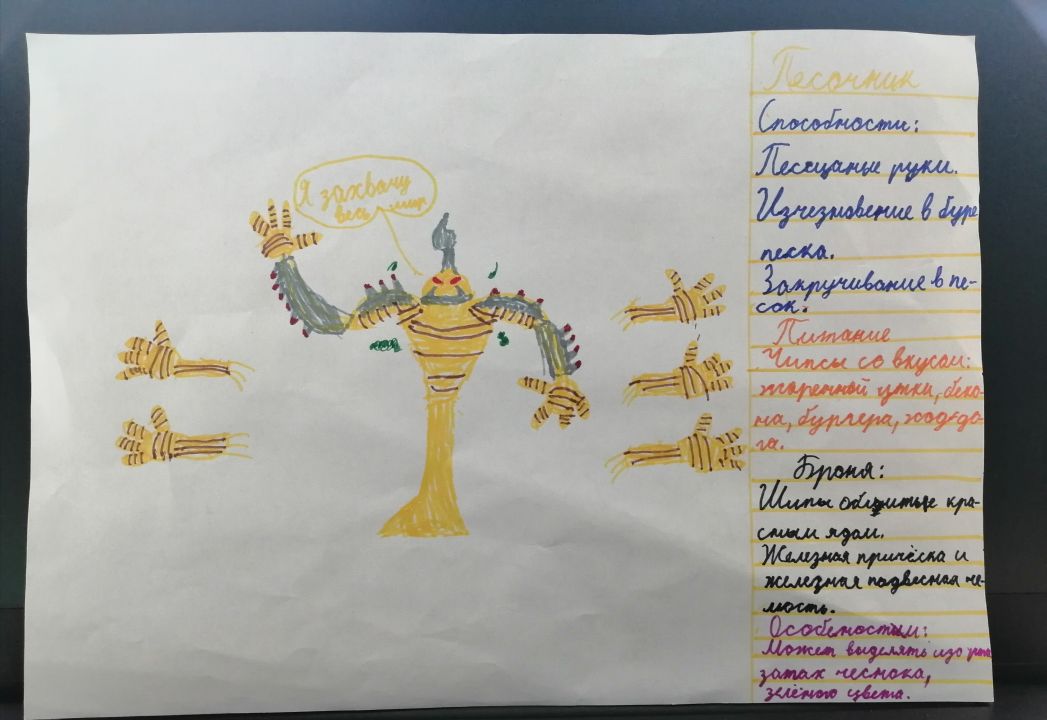 Я захвачу
весь мир
Песочник
Способности:
Песещаные руки.
Изчезновение в буре
песка.
Закручивание в пе-
сок.
Питание
Чипсы со вкусом:
жаренной утки, беко-
на, бургера, ход-до-
га.
Броня:
Шипы облитые кра-
сным ядом.
Железная причёска и
железная подвесная че-
люсть.
Особеностьи:
Может выделять изо рта
запах чеснока,
зелёного цвета.